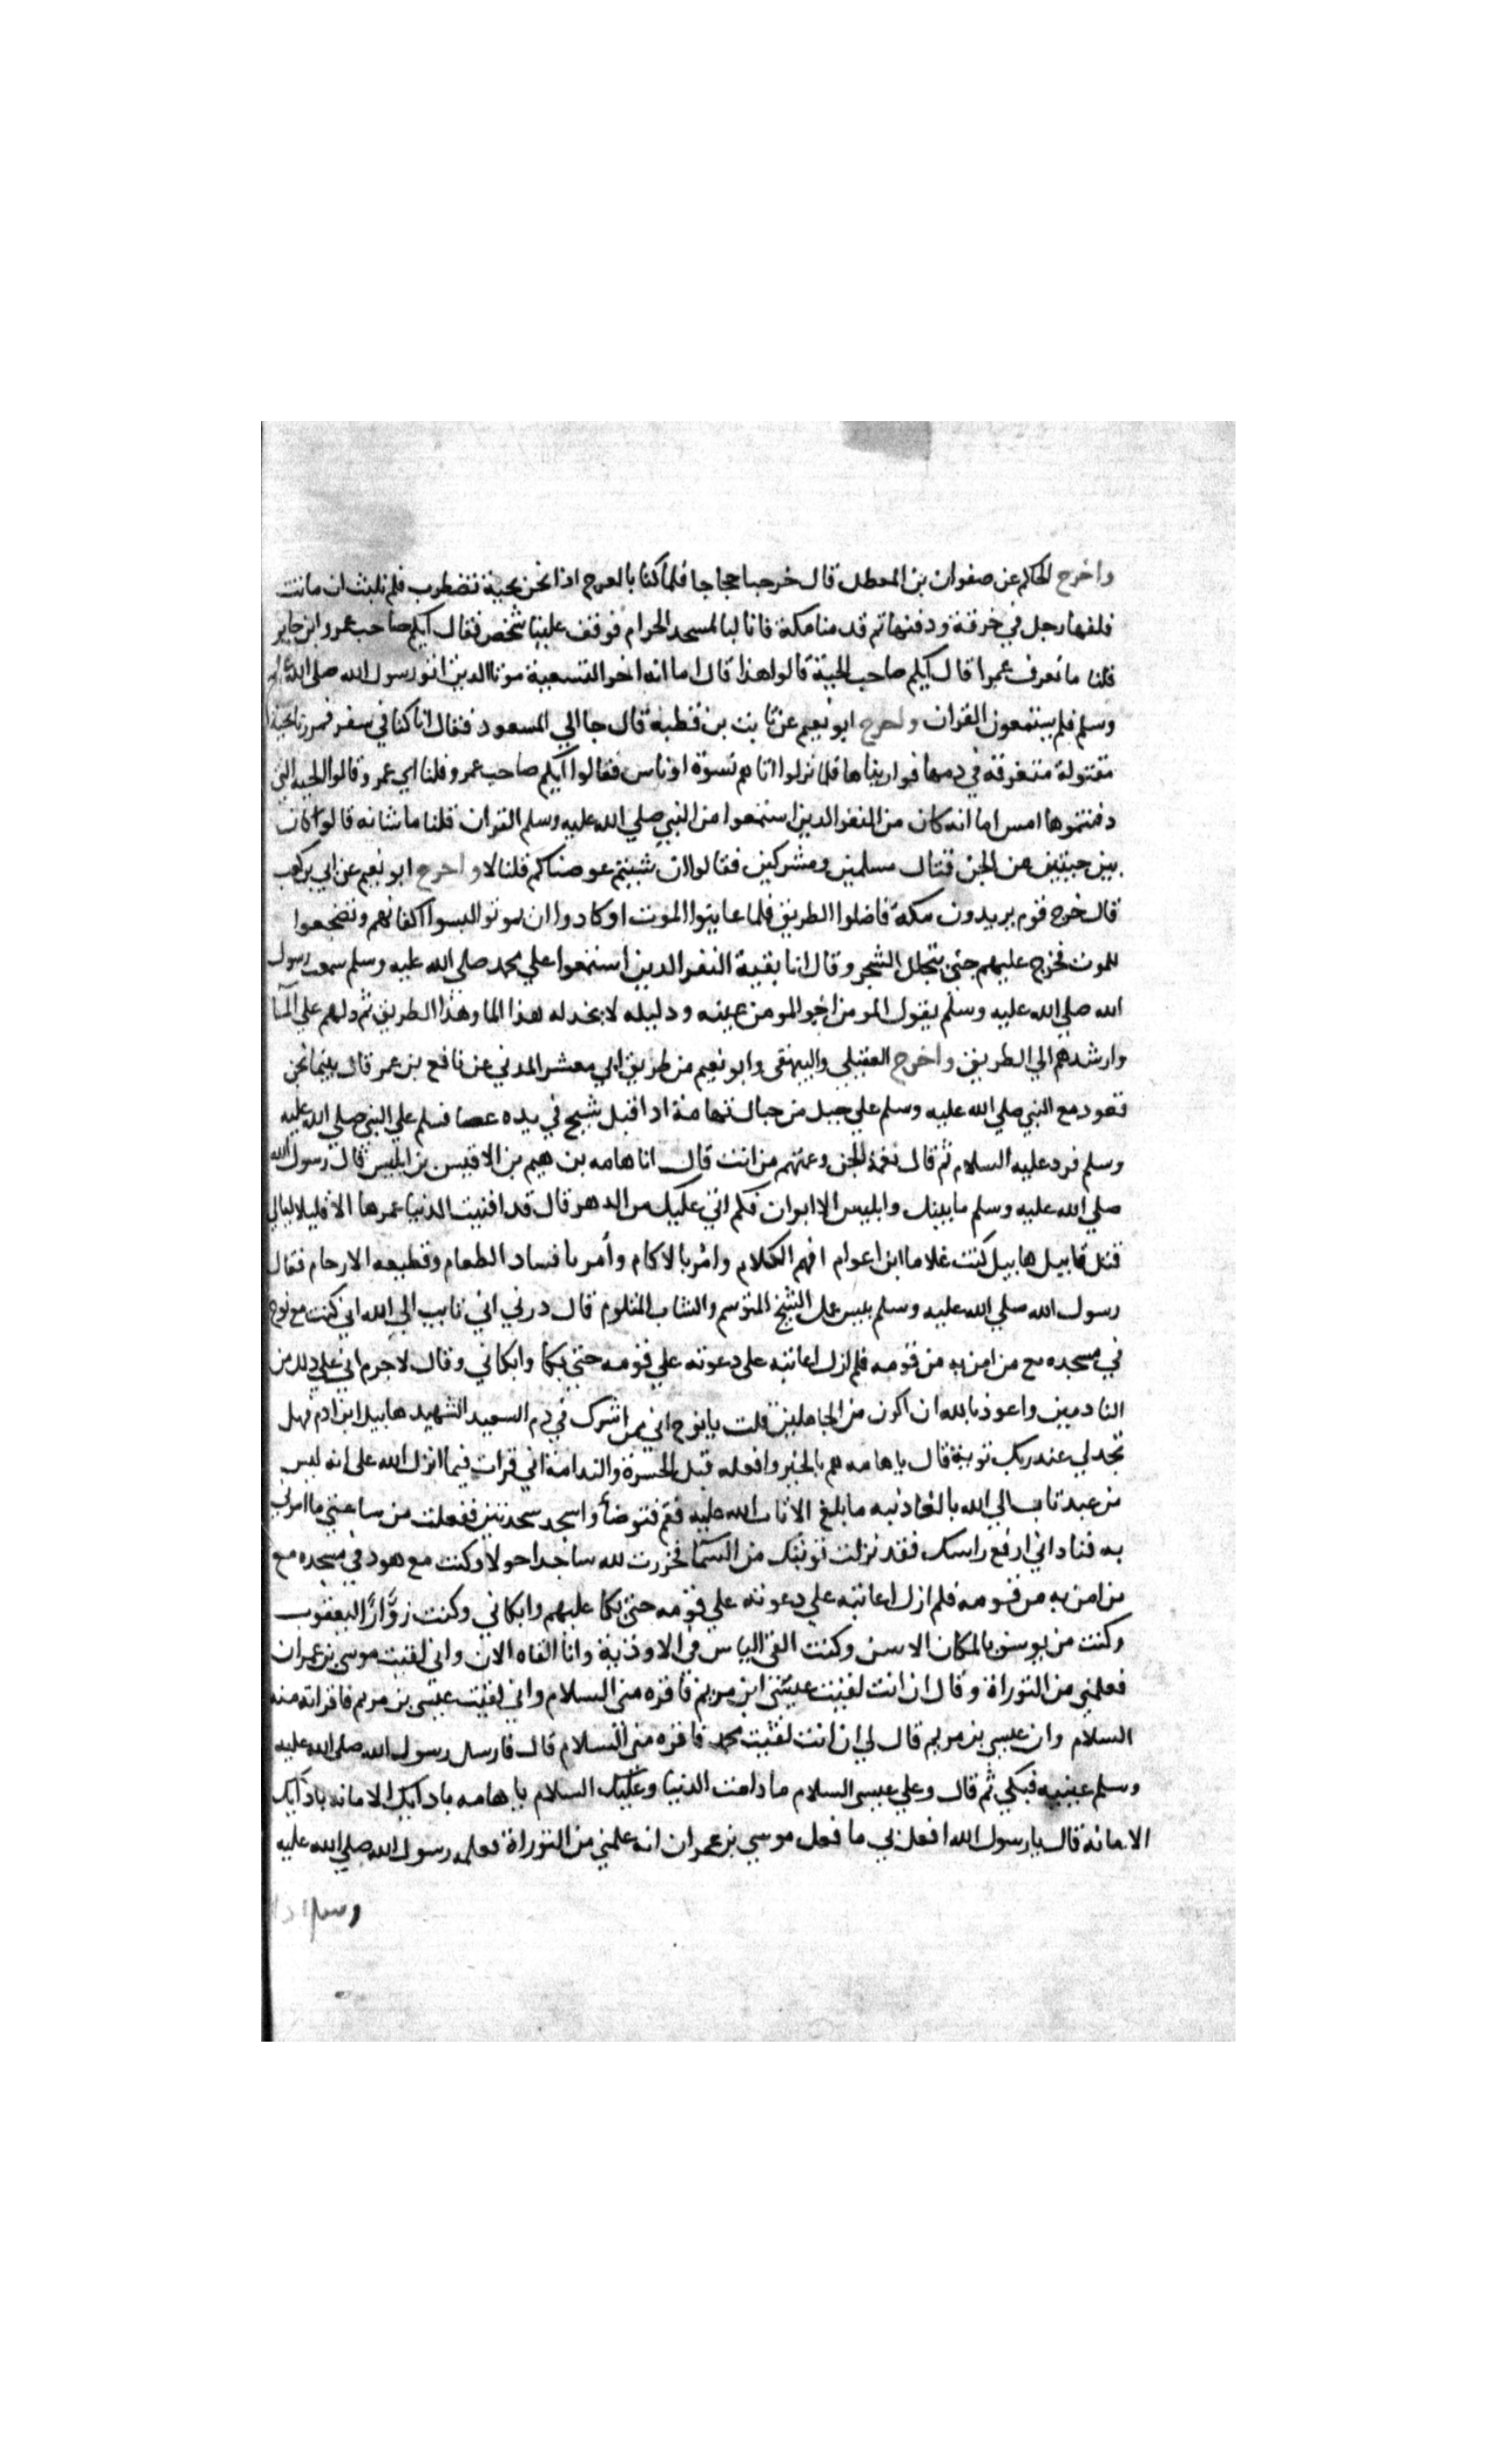 واخرج الحاكم عن صفوان بن المعطل قال خرجنا حجاجا فلما كنا بالعرج اذا نحن بحية تضطرب فلم تلبث ان ماتت
فلفها رجل في خرقة ودفنها ثم قدمنا مكة فانا لبالمسجد الحرام فوقف علينا شخص فقال ايكم صاحب عمرو ابن جابر
قلنا ما نعرف عمرا قال ايكم صاحب الحية قالوا هذا قال اما انه اخر التسعة موتا الدين اتو رسول الله صلى الله عليه
وسلم فلم يستمعون القران واخرج ابو نعيم عن ثابت بن قطبة قال جا الي المسعود فقال انا كنا في سفر فمررنا بحية
مقتولة متغرقة في دمها فواريناها فلما نزلوا اتاهم نسوة او ناس فقالوا ايكم صاحب عمرو قلنا اي عمرو قالوا الحية التي
دفنتموها امس اما انه كان من النفر الدين استمعوا من النبي صلي الله عليه وسلم القران قلنا ما شانه قالوا كان
بين حيين من الجن قتال مسلمين ومشركين فقالوا ان شيتم عوضناكم قلنا لا واخرج ابو نعيم عن ابي بن كعب
قال خرج قوم يريدون مكة فاضلوا الطريق فلما عاينوا الموت او كادوا ان يموتو البسوا اكفانهم وتضجعوا
للموت فخرج عليهم جني يتخلل الشجر وقال انا بقية النفر الدين استمعوا علي محمد صلي الله عليه وسلم سمعت رسول
الله صلي الله عليه وسلم يقول المومن اخو المومن عينه ودليله لا يخدله هذا الما وهذا الطريق ثم دلهم علي المآ
وارشدهم الي الطريق واخرج العقيلي والبيهقي وابو نعيم من طريق ابي معشر المدني عن نافع بن عمر قال بينما نحن
قعود مع النبي صلي الله عليه وسلم علي جبل من جبال تهامة اد اقبل شيخ في يده عصا فسلم علي النبي صلي الله عليه
وسلم فرد عليه السلام ثم قال نغمة الجن وغنتهم من انت قال انا هامه بن هيم بن الاقيس بن ابليس قال رسول الله
صلي الله عليه وسلم ما بينك وابليس الا ابوان فكم اتي عليك من الدهر قال قد افنيت الدنيا عمرها الا قليلا ليالي
قتل قابيل هابيل كنت غلاما ابن اعوام افهم الكلام وامر بالاكام وأمر بافساد الطعام وقطيعه الارحام فقال
رسول الله صلي الله عليه وسلم بيس عمل الشيخ المتوسم والشاب المتلوم قال درني اني تايب الي الله اني كنت مع نوح
في مسجده مع من امن به من قومه فلم ازل اعاتبه على دعوته علي قومه حتي بكا وابكاني وقال لا جرم اني علي دلك من
النادمين واعوذ بالله ان اكون من الجاهلين قلت يا نوح اني ممن اشرك في دم السعيد الشهيد هابيل ابن ادم فهل
تجد لي عند ربك توبة قال يا هامه هم بالخير وافعله قبل الحسرة والندامة اني قرات فيما انزل الله على انه ليس
من عبد تاب الي الله بالغا ذنبه ما بلغ الا تاب الله عليه فقم فتوضأ واسجد سجدتين ففعلت من ساعتي ما امرني
به فناداني ارفع راسك فقد نزلت توبتك من السمآ فخررت لله ساجدا حولا وكنت مع هود في مسجده مع
من امن به من قومه فلم ازل اعاتبه علي دعوته علي قومه حتي بكا عليهم وابكاني وكنت زوَّارًا ليعقوب
وكنت من يوسف بالمكان الامين وكنت القى الياس في الاوذية وانا القاه الان واني لقيت موسي بن عمران
فعلمني من التوراة وقال ان انت لقيت عيسي ابن مريم فاقره مني السلام واني لقيت عيسي بن مريم فاقراته منه
السلام وان عيسي بن مريم قال لي ان انت لقيت محمد فاقره مني السلام قال فارسل رسول الله صلي الله عليه
وسلم عينيه فبكي ثم قال وعلي عيسى السلام ما دامت الدنيا وعليك السلام يا هامه بادآيك الامانه بادآيك
الامانه قال يا رسول الله افعل بي ما فعل موسي بن عمران انه علمني من التوراة فعلمه رسول الله صلي الله عليه
وسلم